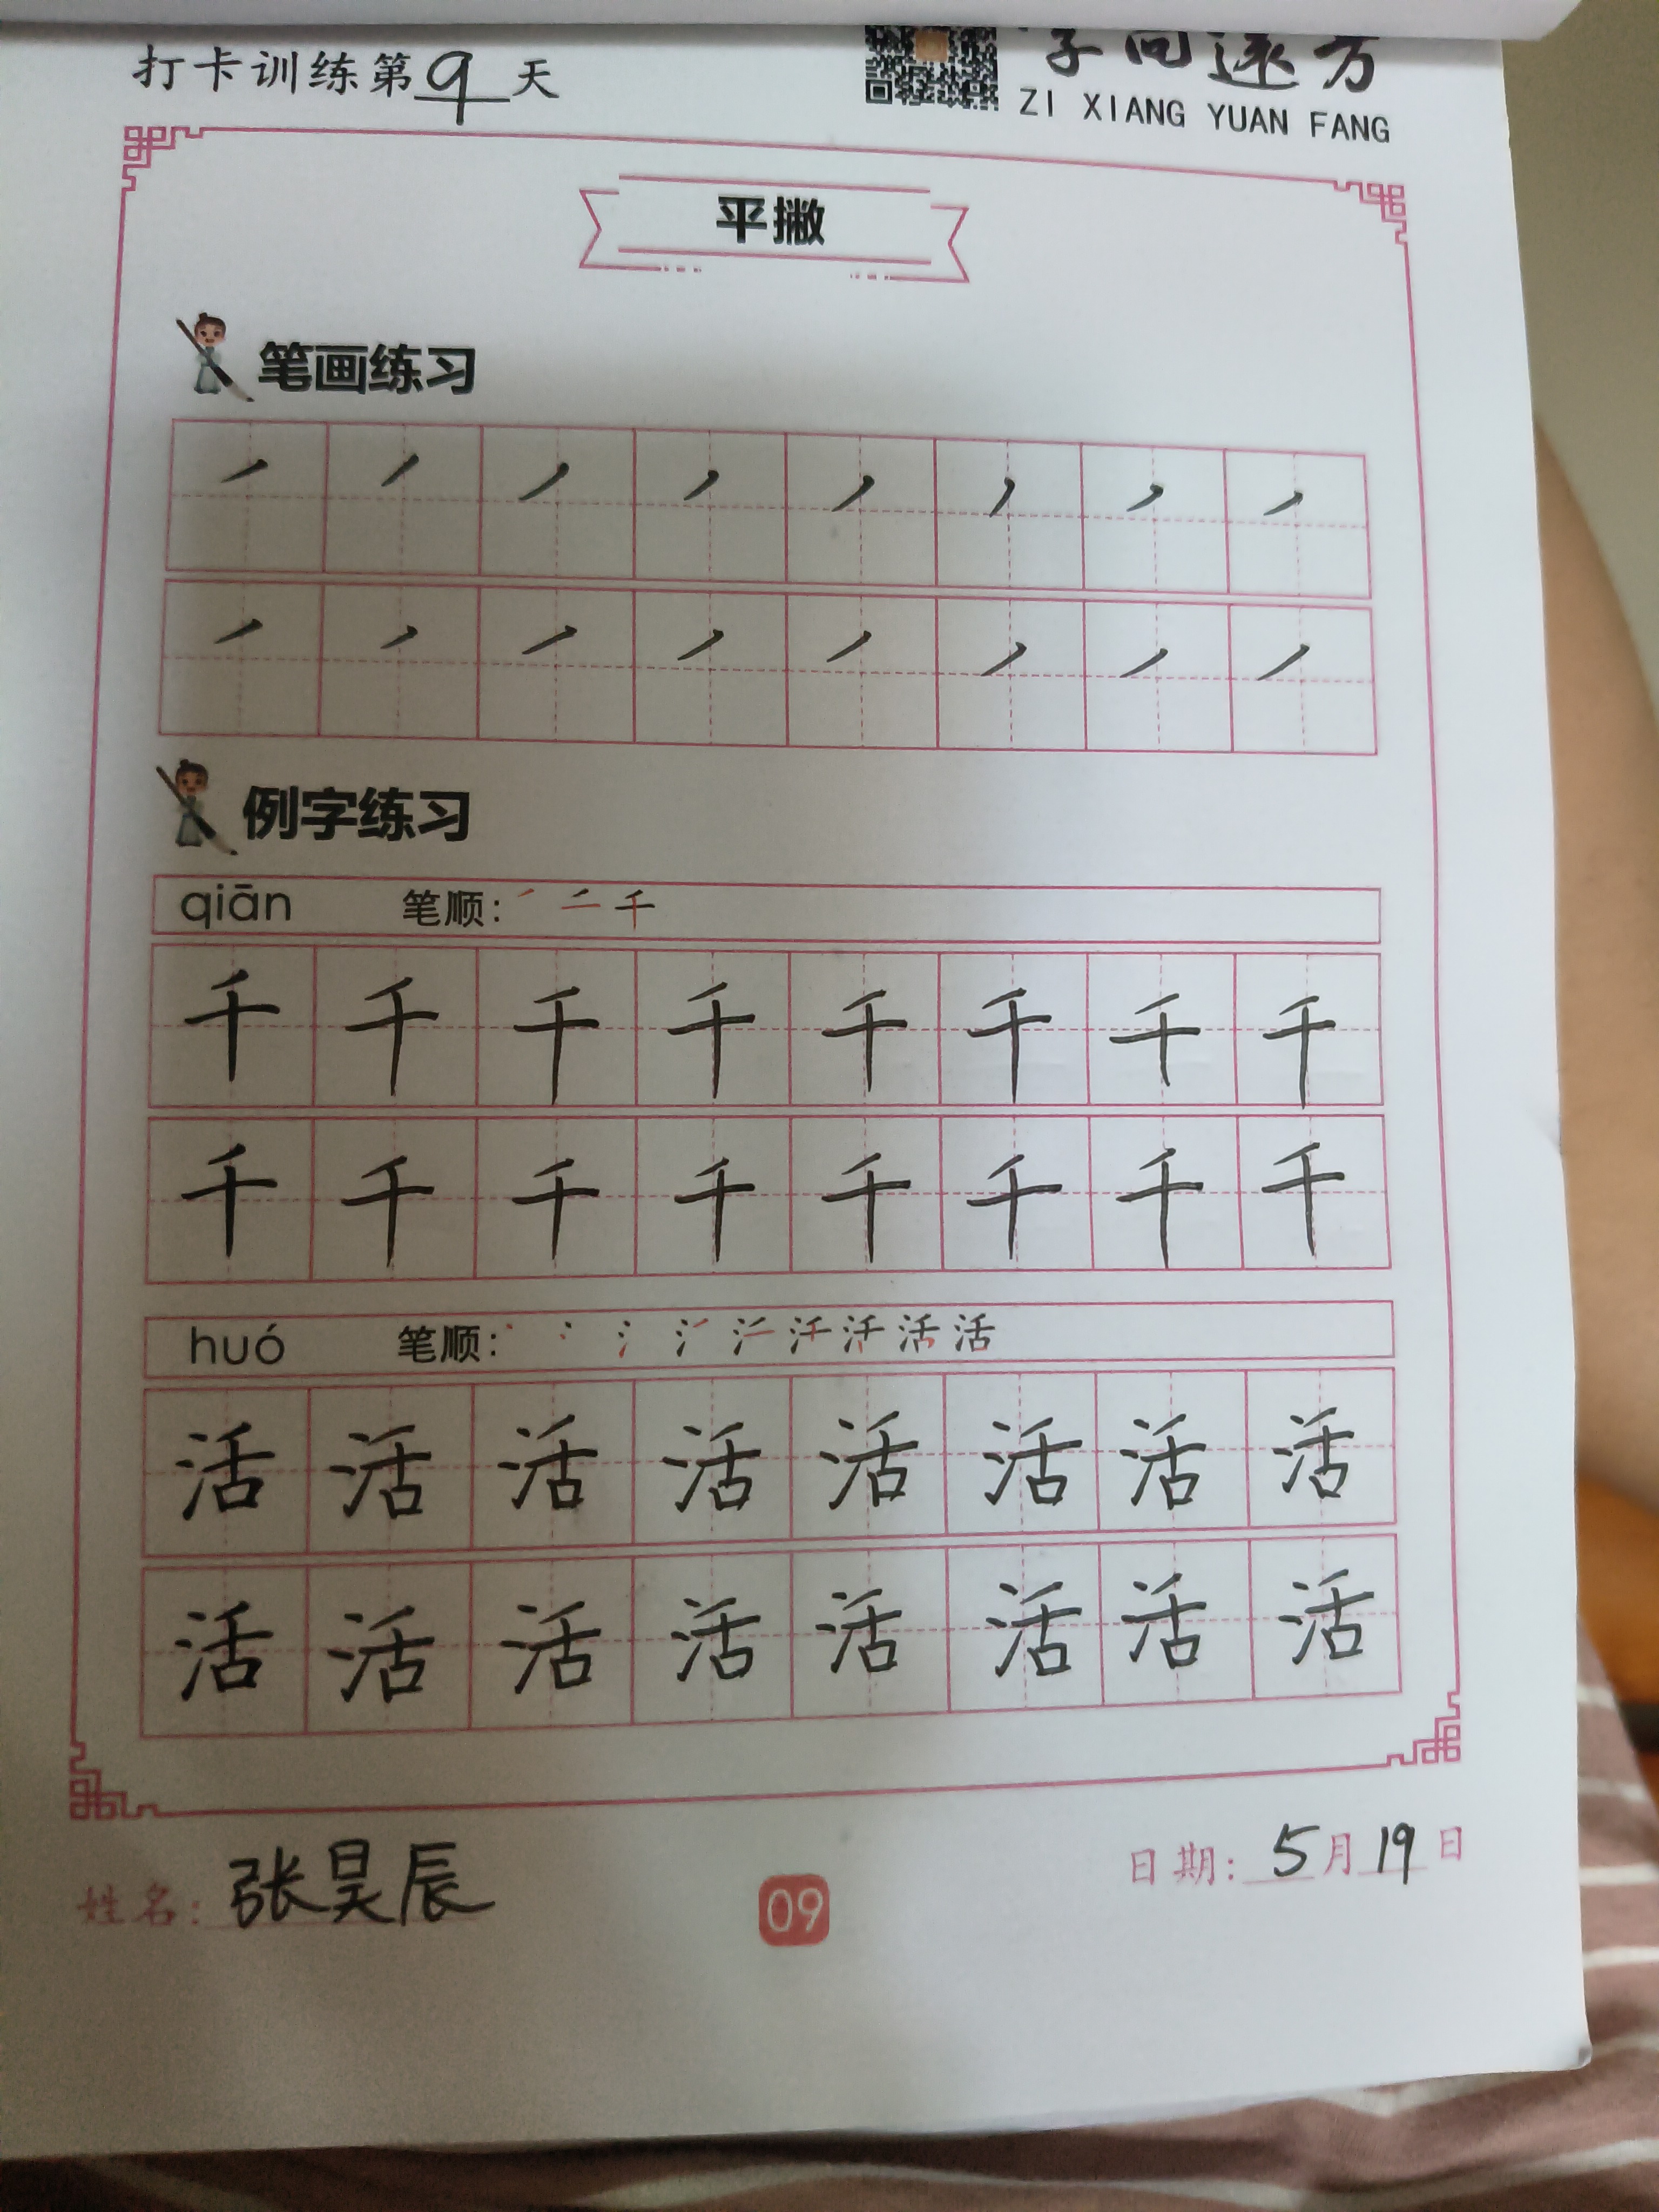 打卡训练第9天
字向远方
ZI XIANG YUAN FANG
平撇
笔画练习
㇒ ㇒ ㇒ ㇒ ㇒ ㇒ ㇒ ㇒
㇒ ㇒ ㇒ ㇒ ㇒ ㇒ ㇒ ㇒
例字练习
qiān 笔顺: ㇒ 二 千
千 千 千 千 千 千 千 千
千 千 千 千 千 千 千 千
huó 笔顺: 活
活 活 活 活 活 活 活 活
活 活 活 活 活 活 活 活
姓名: 张昊辰
09
日期: 5月19日